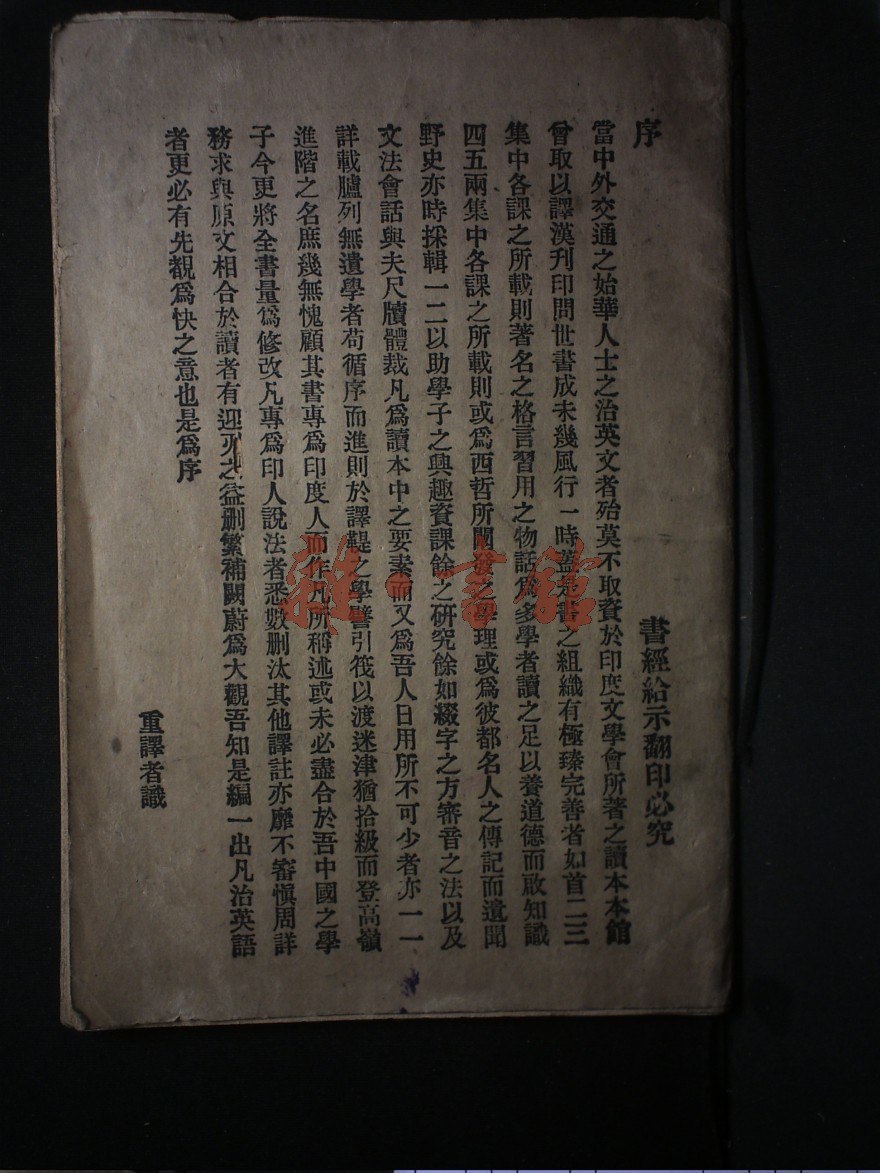 序
書經給示翻印必究
當中外交通之始華人士之治英文者殆莫不取資於印度文學會所著之讀本本館
曾取以譯漢刊印問世書成未幾風行一時蓋是書之組織有極臻完善者如首二三
集中各課之所載則著名之格言習用之物話爲多學者讀之足以養道德而啟知識
四五兩集中各課之所載則或爲西哲所闡發之學理或爲彼都名人之傳記而遺聞
野史亦時採輯一二以助學子之興趣資課餘之研究餘如綴字之方審音之法以及
文法會話與夫尺牘體裁凡爲讀本中之要素而又爲吾人日用所不可少者亦一一
詳載臚列無遺學者苟循序而進則於譯鞮之學譬引筏以渡迷津猶拾級而登高嶺
進階之名庶幾無愧顧其書專爲印度人而作凡所稱述或未必盡合於吾中國之學
子今更將全書量爲修改凡專爲印人說法者悉數删汰其他譯註亦靡不審愼周詳
務求與原文相合於讀者有迎刃之益删繁補闕蔚爲大觀吾知是編一出凡治英語
者更必有先覩爲快之意也是爲序
重譯者識
雜·書館